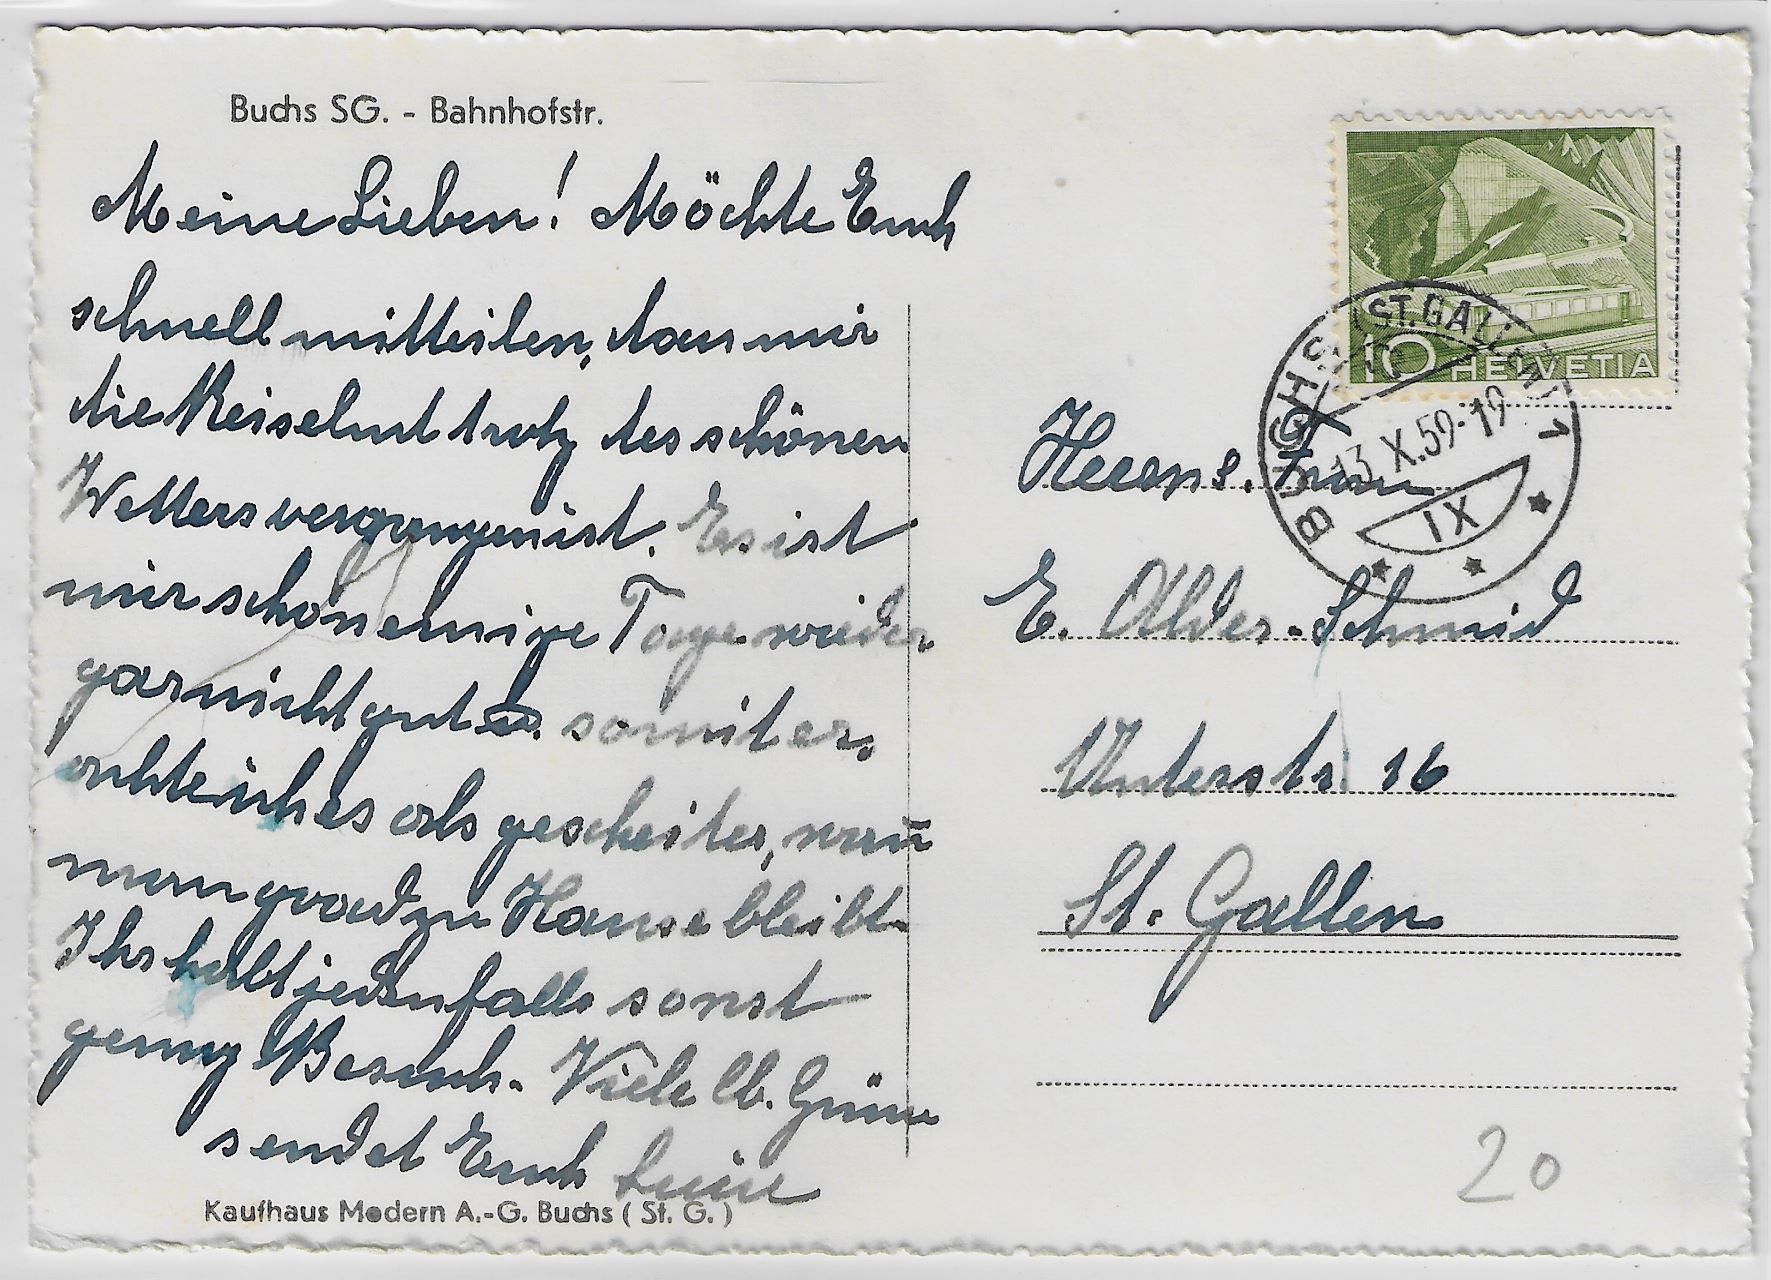 Buchs SG. - Bahnhofstr.
Meine Lieben! Möchte Euch
schnell mitteilen, dass mir
die Reiselust trotz des schönen
Wetters vergangen ist. Es ist
mir schon einige Tage wieder
gar nicht gut somit er-
achte ich es als gescheiter, wenn
man grad zu Hause bleibt.
Ihr habt jedenfalls sonst
genug Besuch. Viele lb. Grüsse
sendet Euch
Kaufhaus Modern A.-G. Buchs ( St. G. )
10 HELVETIA
BUCHS (ST. GALLEN) 1
13. X. 59-19
IX
Herrn u. Frau
E. Alder-Schmid
Unterstr. 16
St. Gallen
20